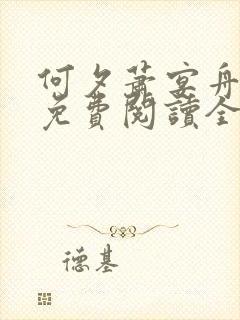 何夕蕭宴舟
免費閱讀全
德基